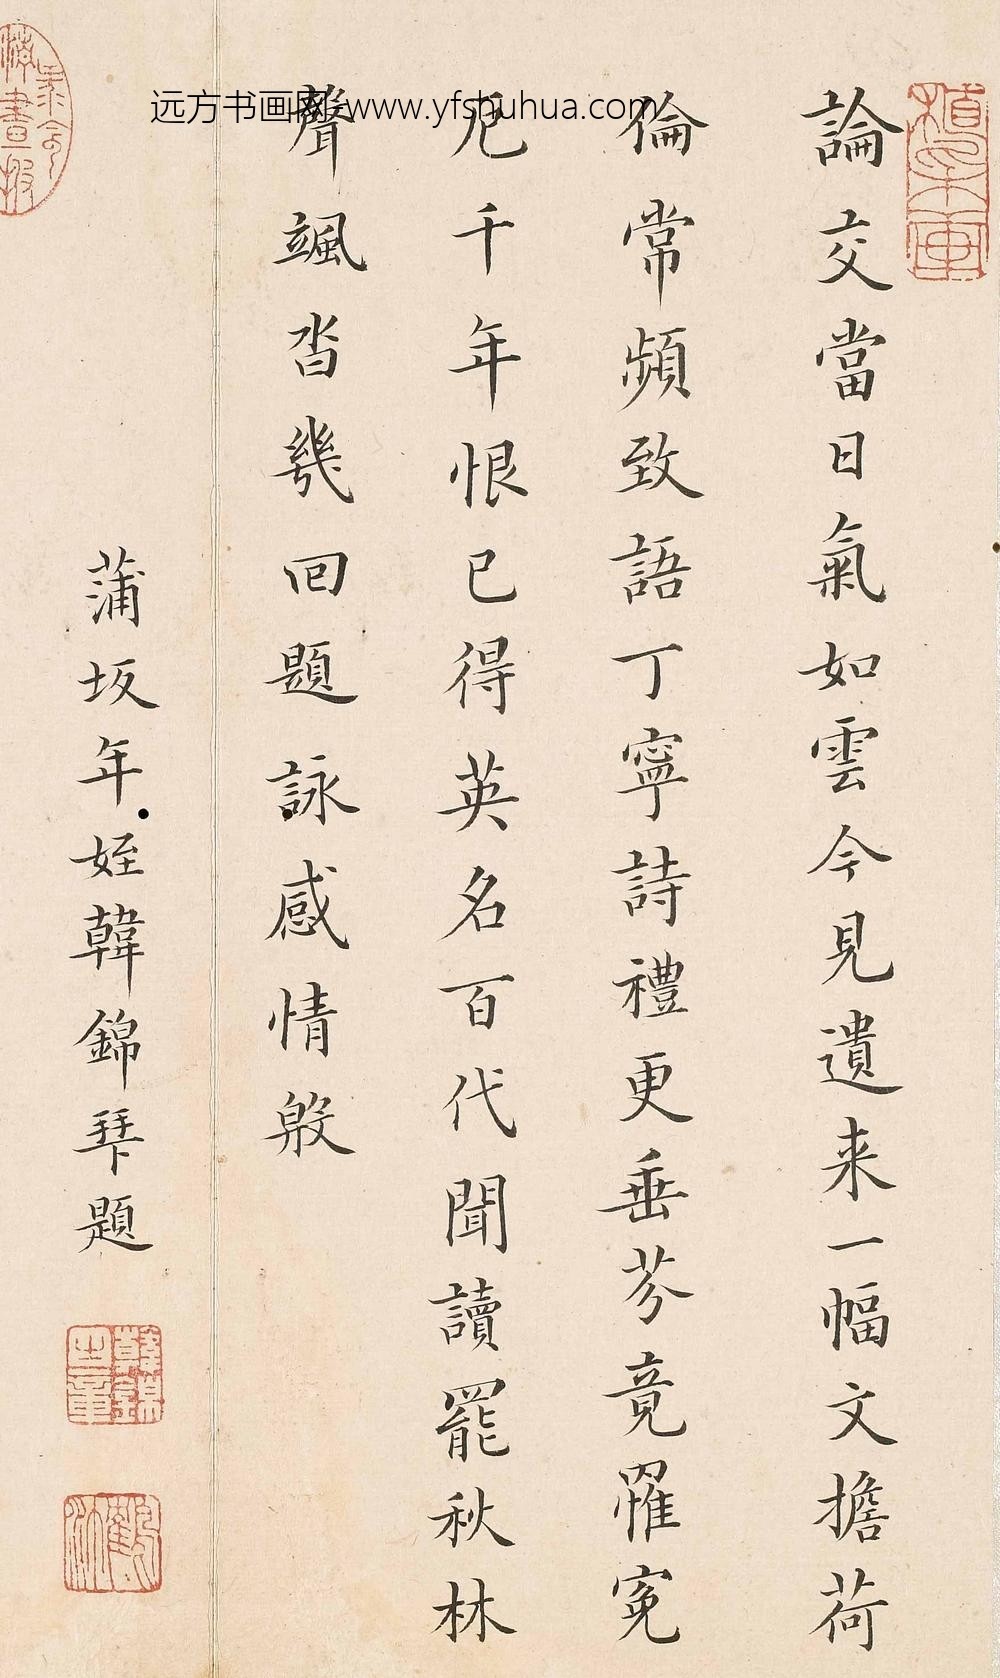 远方书画网:www.yfshuhua.com
論交當日氣如雲今見遺来一幅文擔荷
倫常頻致語丁寧詩禮更垂芬竟罹冤
厄千年恨已得英名百代聞讀罷秋林
聲颯沓幾回題詠感情殷
蒲坂年姪韓錦琹題